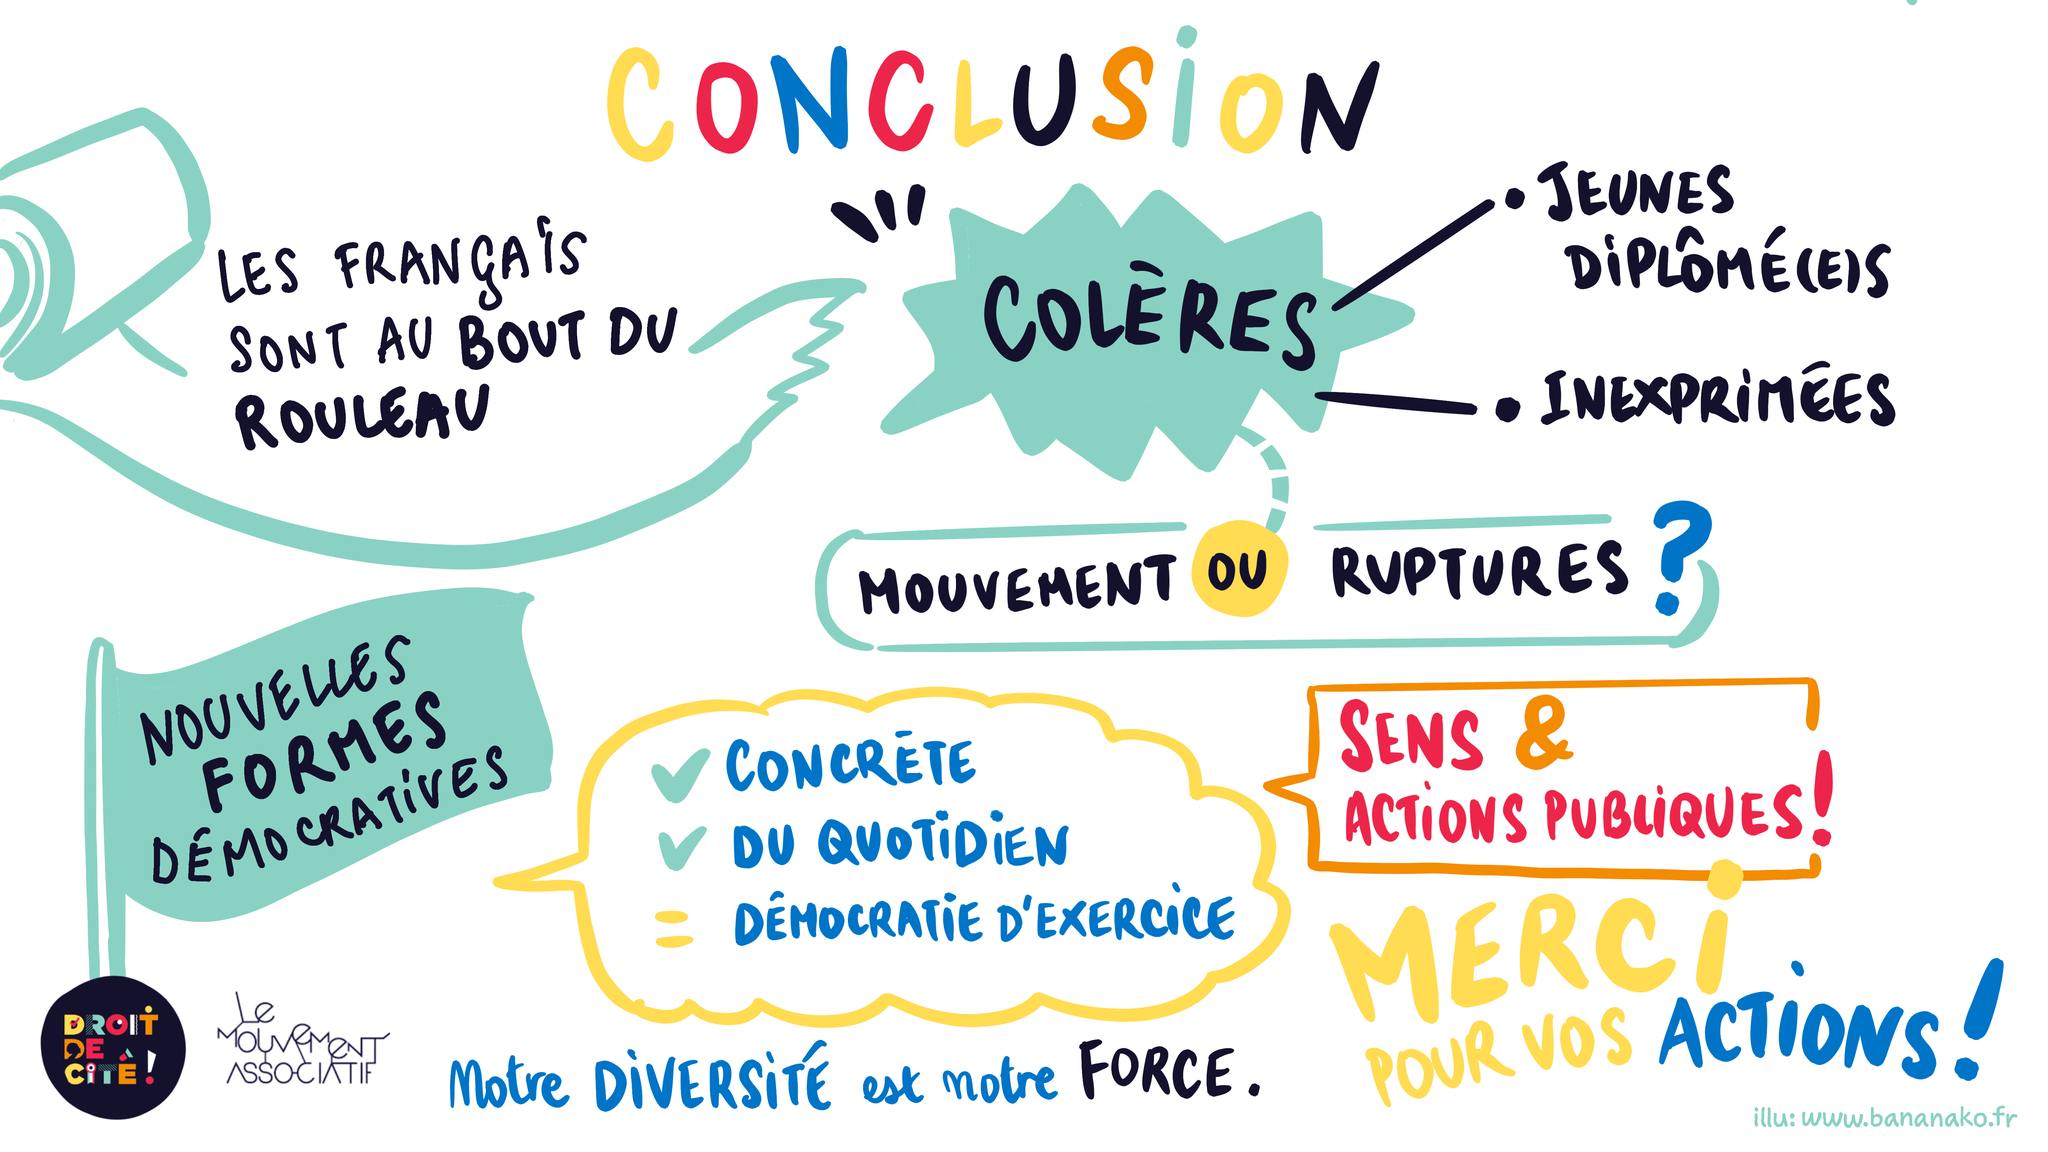 CONCLUSION
LES FRANÇAIS
SONT AU BOUT DU
ROULEAU
COLÈRES
• JEUNES
DIPLÔMÉ(E)S
• INEXPRIMÉES
MOUVEMENT OU RUPTURES ?
NOUVELLES
FORMES
DÉMOCRATIVES
✓ CONCRÈTE
✓ DU QUOTIDIEN
= DÉMOCRATIE D'EXERCICE
SENS &
ACTIONS PUBLIQUES !
MERCI
POUR VOS ACTIONS !
Notre DIVERSITÉ est notre FORCE.
DROIT
DE
CITÉ !
LE
MOUVEMENT
ASSOCIATIF
illu: www.bananako.fr